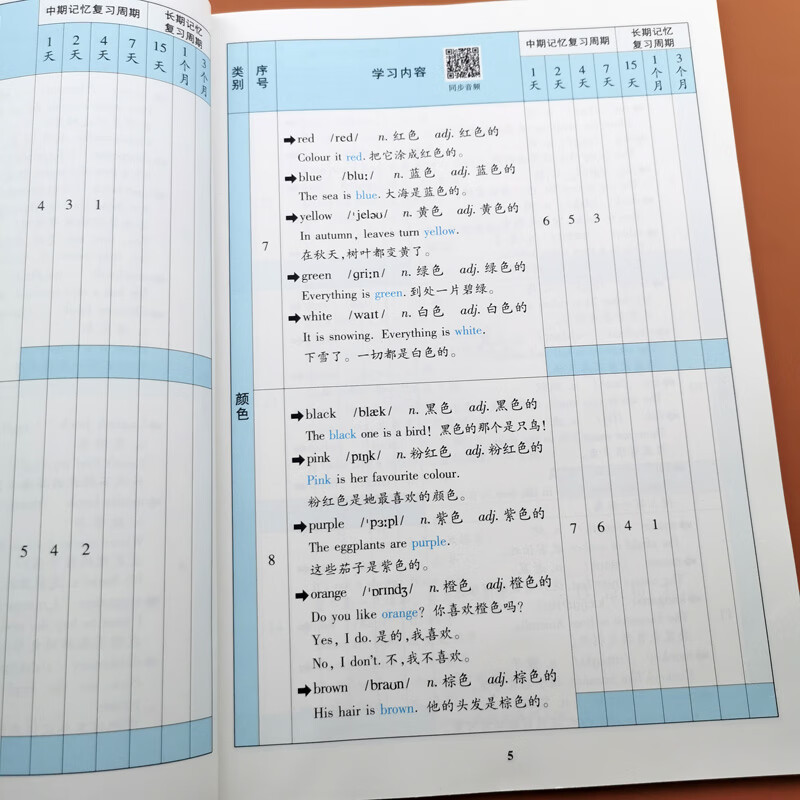 中期记忆复习周期
长期记忆
复习周期
1天 2天 4天 7天 15天 1个月 3个月
4 3 1
5 4 2
类别 序号 学习内容 同步音频
中期记忆复习周期
长期记忆
复习周期
1天 2天 4天 7天 15天 1个月 3个月
颜色
7
red /red/ n. 红色 adj. 红色的
Colour it red. 把它涂成红色的。
blue /bluː/ n. 蓝色 adj. 蓝色的
The sea is blue. 大海是蓝色的。
yellow /ˈjeləʊ/ n. 黄色 adj. 黄色的
In autumn, leaves turn yellow.
在秋天,树叶都变黄了。
green /ɡriːn/ n. 绿色 adj. 绿色的
Everything is green. 到处一片碧绿。
white /waɪt/ n. 白色 adj. 白色的
It is snowing. Everything is white.
下雪了。一切都是白色的。
6 5 3
8
black /blæk/ n. 黑色 adj. 黑色的
The black one is a bird! 黑色的那个是只鸟!
pink /pɪŋk/ n. 粉红色 adj. 粉红色的
Pink is her favourite colour.
粉红色是她最喜欢的颜色。
purple /ˈpɜːpl/ n. 紫色 adj. 紫色的
The eggplants are purple.
这些茄子是紫色的。
orange /ˈɒrɪndʒ/ n. 橙色 adj. 橙色的
Do you like orange? 你喜欢橙色吗?
Yes, I do. 是的,我喜欢。
No, I don't. 不,我不喜欢。
brown /braʊn/ n. 棕色 adj. 棕色的
His hair is brown. 他的头发是棕色的。
7 6 4 1
5